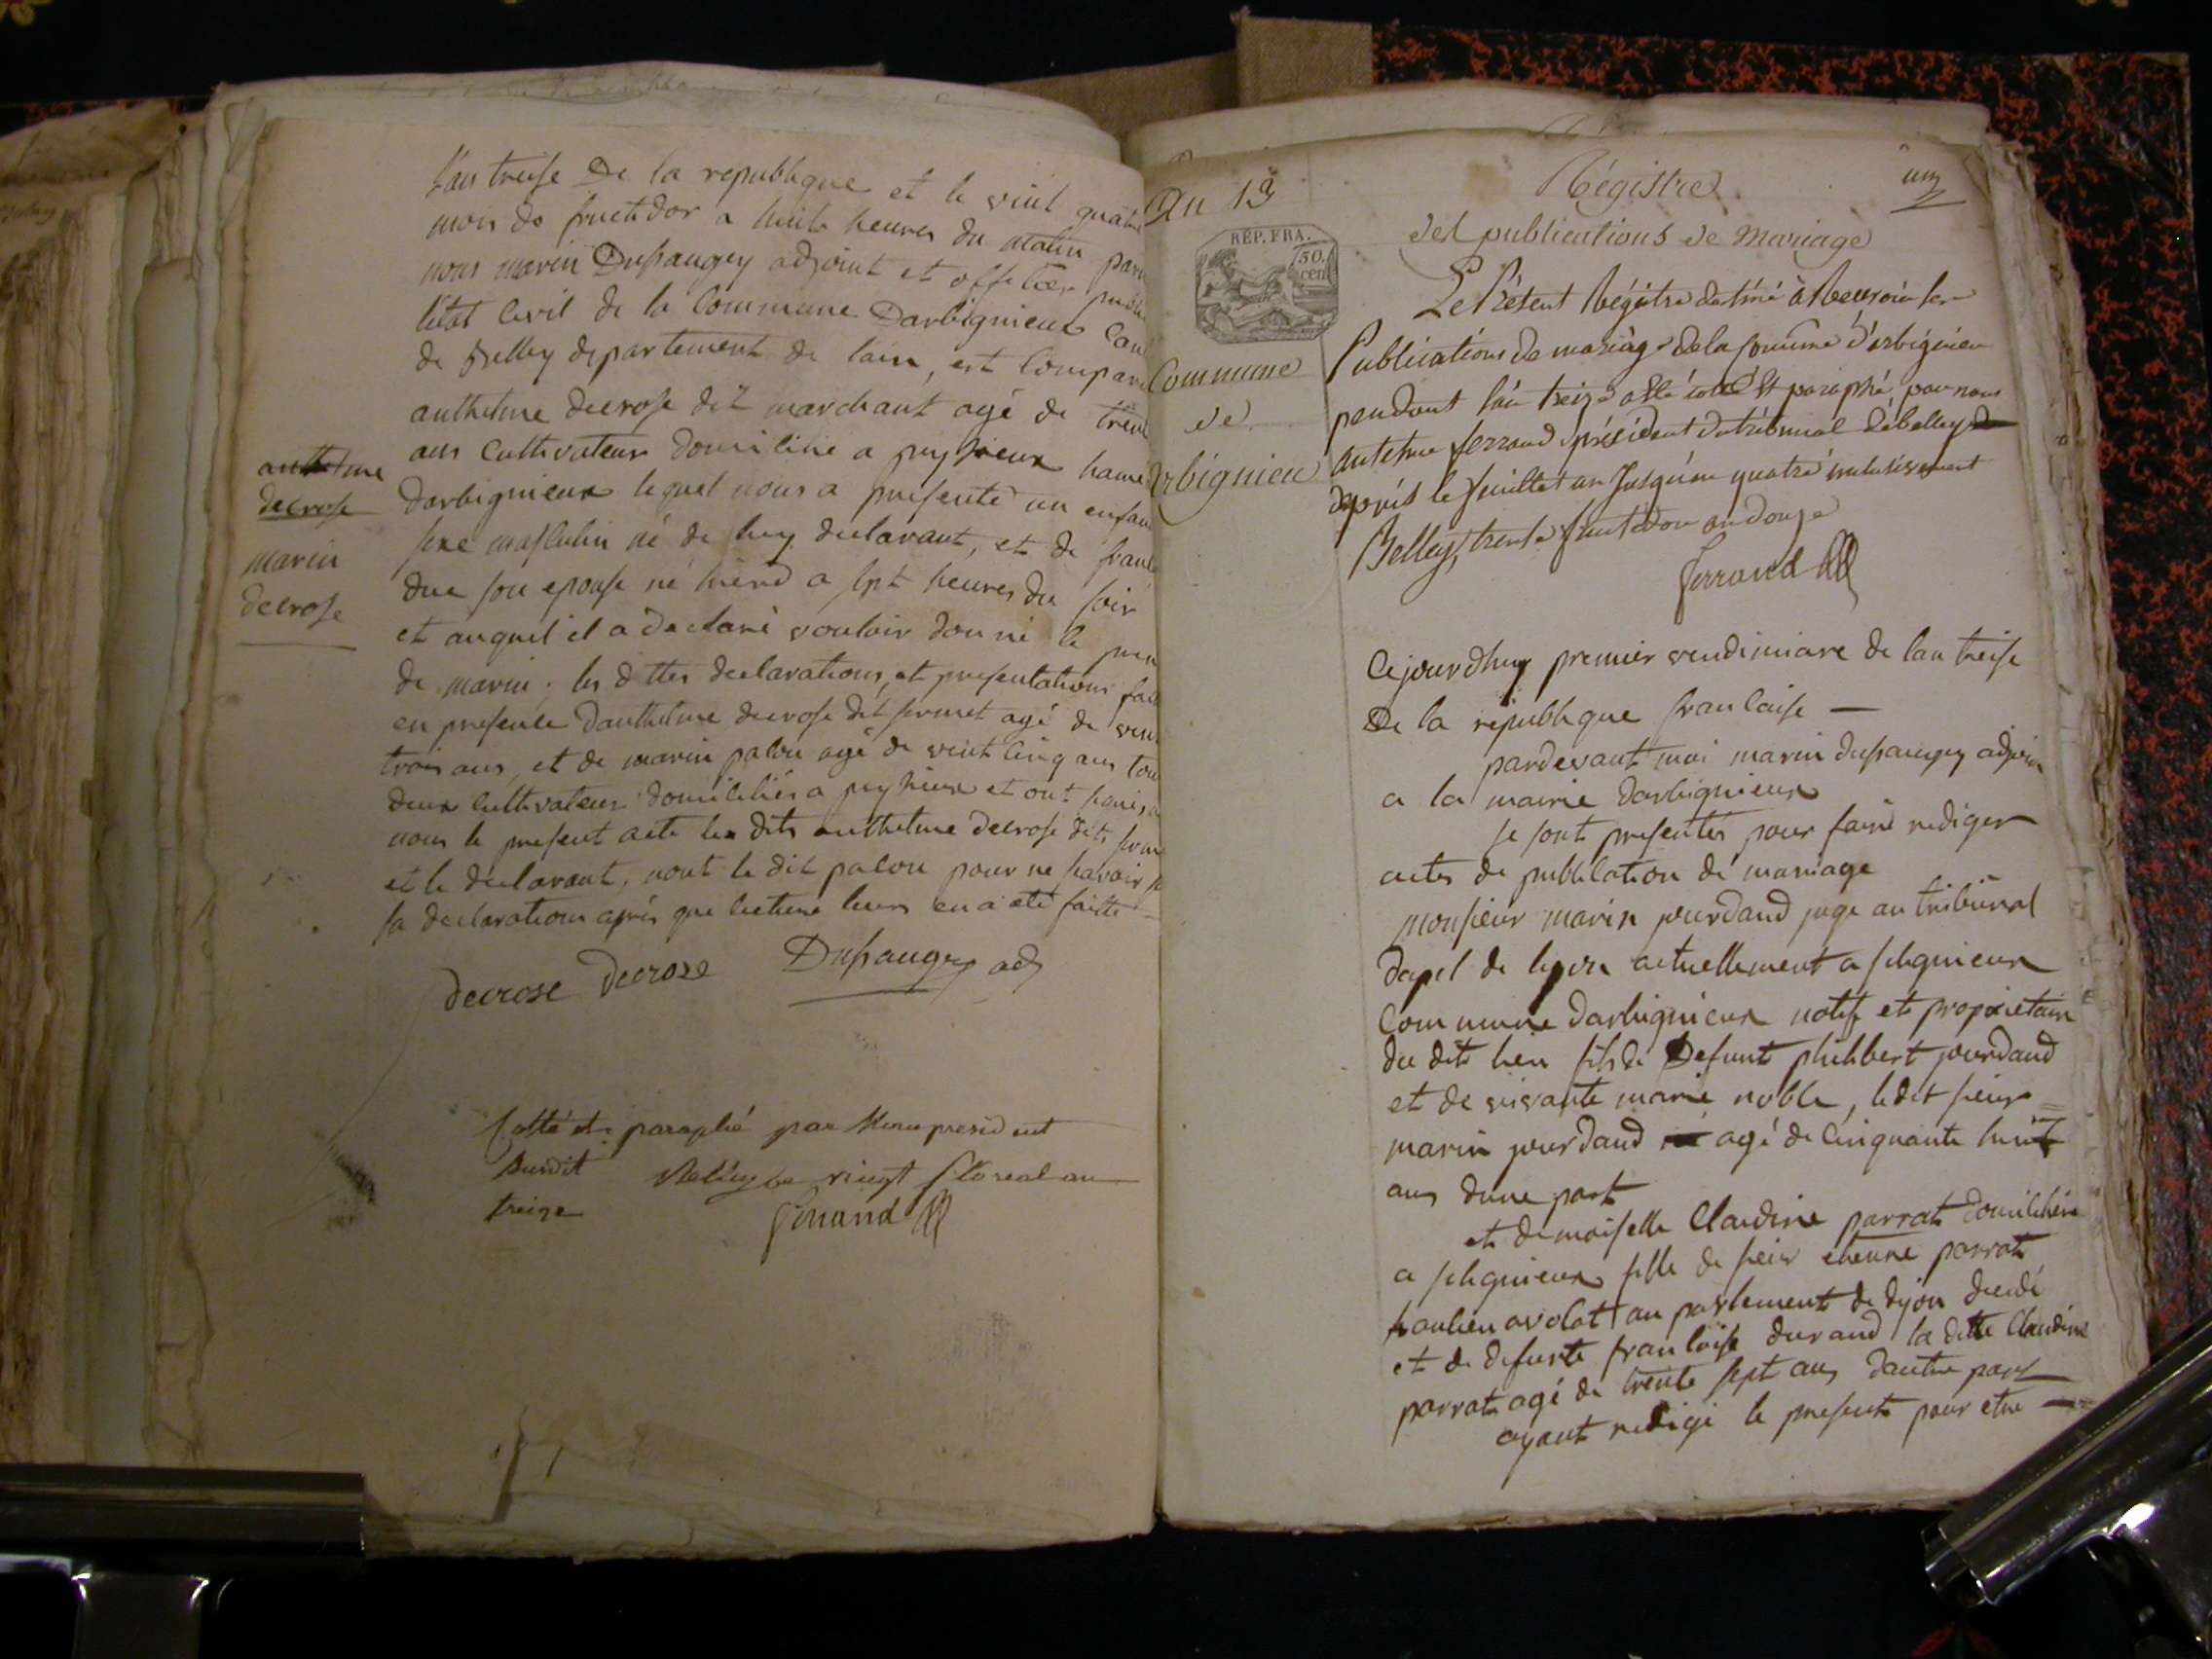 l'an treise De la republique et le vint quatre
mois de fructidor a huit heures du matin par
nous marin Dupaugey adjoint et officier publi
l'etat Civil de la Commune Darbignieux Can
de Belley departement de lain, est Compar
anthelme decrose dit marchant agé de tren
ans Cultivateur domicilié a peyzieux hame
Darbignieux lequel nous a presenté un enfan
sexe masculin né de luy declarant, et de fran
due son epouse né hierd a sept heures du soir
et auquel il a declaré vouloir donné le pren
de marin. les dittes declarations, et presentations fait
en presence danthelme decrose dit fermet agé de vin
trois ans, et de marin palou agé de vint Cinq ans tou
deux Cultivateurs domiciliés a peyzieux et ont
nous le present acte les dits anthelme decrose dits
et le declarant, nont le dit palou pour ne savoir
sa declaration après que lecture leurs en a eté faitte
anthelme
decrose
marin
decrose
decrose Decroze Dupaugey adj
Cotté et paraphé par president
susdit Belley le vingt floreal an
treize Ferrand
An 13
REP. FRA.
50.
cen
Commune
de
Arbignieu
Régistre
un
des publications de Mariage
Le Présent Régitre destiné à Recevoir les
Publications de mariage de la commune d'arbignieu
pendant l'an treize a été cotté Et paraphé, par nous
antelme ferrand président du tribunal de belley
depuis le feuillet un Jusqu'au quatre inclusivement
Belley, trente fructidor an douze
Ferrand
Cejourdhuy premier vendimiare de lan treise
De la république francaise —
pardevant moi marin dupaugey adjoin
a la mairie darbignieux
se sont presentés pour faire rediger
actes de publication de mariage
monsieur marin jourdand juge au tribunal
dapel de lyon actuellement a silignieux
Commune darbignieux natif et propriétaire
du dit lieu fils de Defunt philibert jourdand
et de vivante marie noble, ledit sieur
marin jourdand agé de Cinquante huit
ans dune part
et demoiselle Claudine parrat domiciliée
a silignieux fille de sieur etienne parrat
avocat au parlement de dijon
et de defunte francoise durand la ditte Claudine
parrat agé de trente sept ans dautre part
ayant redigé le present pour etre —